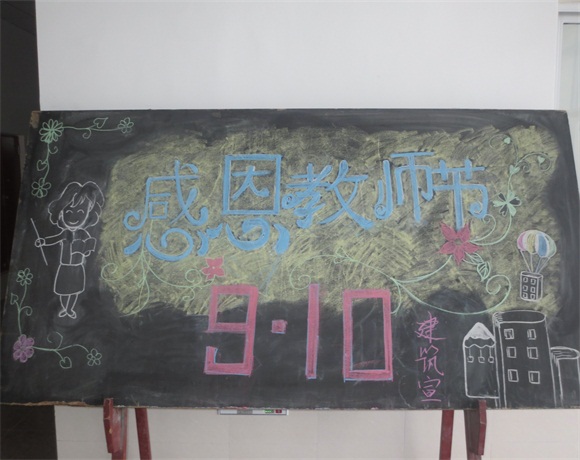 感恩教师节
9·10
建筑宣